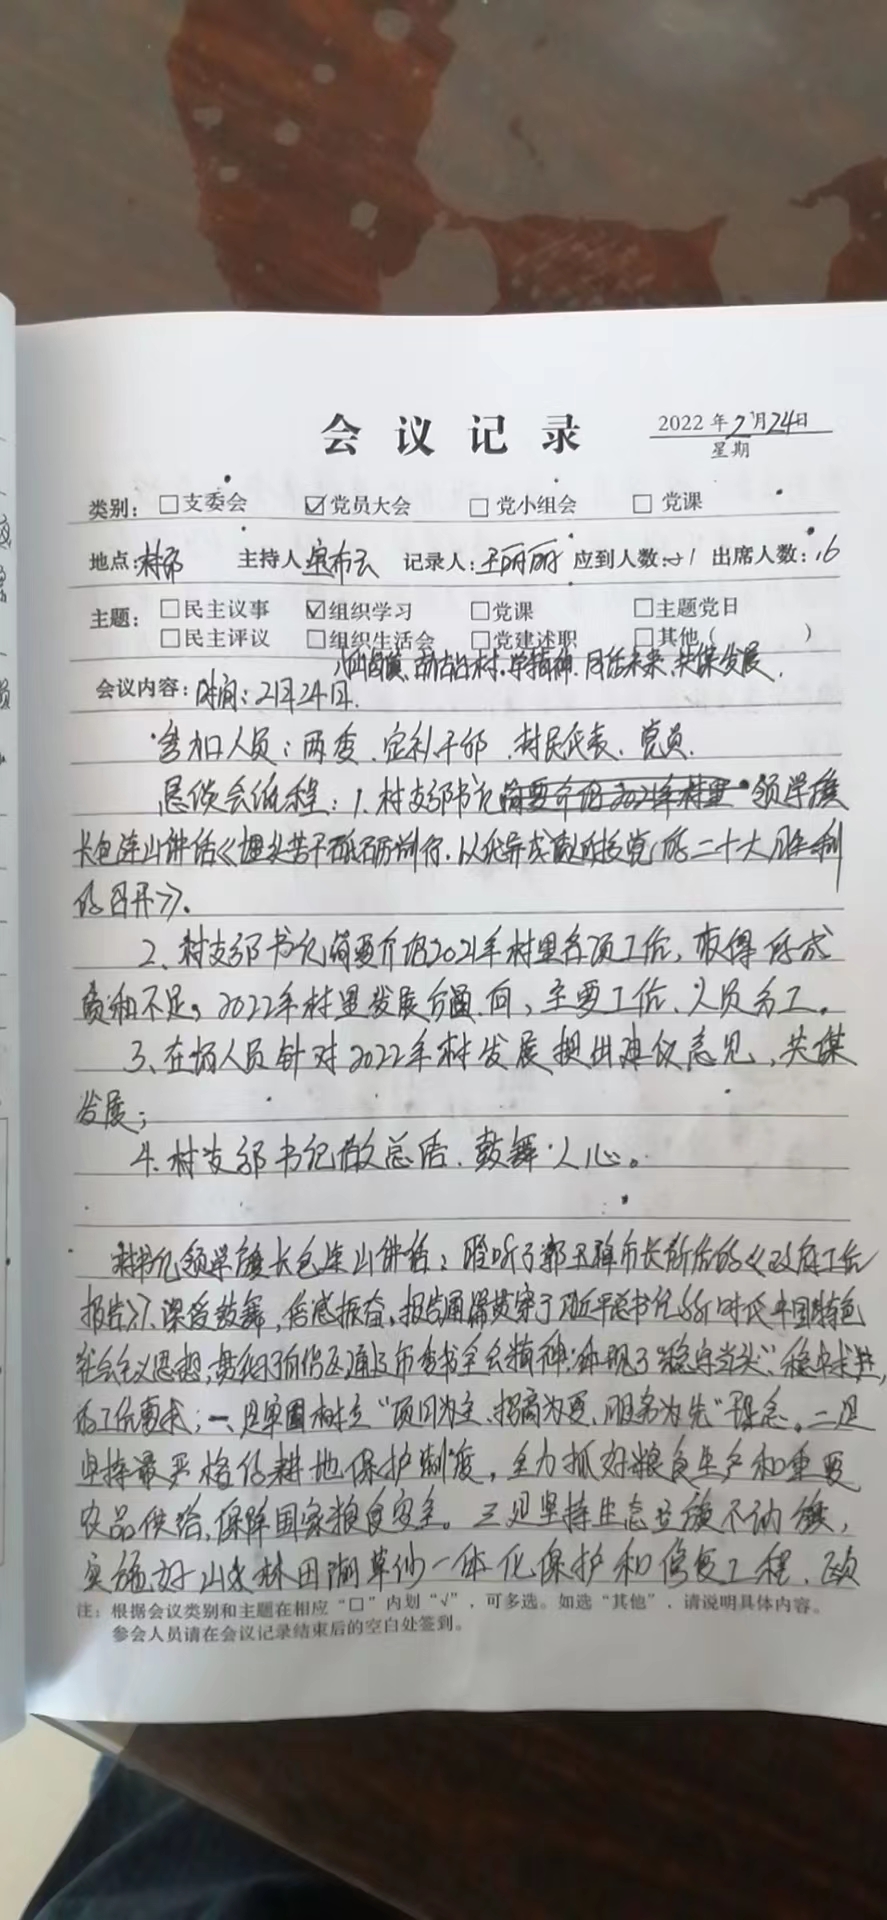 会议记录
2022年2月24日
星期
类别：□支委会 ☑党员大会 □党小组会 □党课
地点：村部 主持人 记录人：王丽丽 应到人数： 出席人数：16
主题：□民主议事 ☑组织学习 □党课 □主题党日
□民主评议 □组织生活会 □党建述职 □其他（ ）
村，学精神，同话未来，共谋发展，
会议内容：时间：2月24日．
参加人员：两委、定补干部、村民代表、党员．
恳谈会流程：1、村支部书记 领学镇
长包连山讲话《埋头苦干砥砺前行，以优异成绩迎接党的二十大胜利
的召开》。
2、村支部书记简要介绍2021年村里各项工作，取得的成
绩和不足，2022年村里发展方向，主要工作、人员分工。
3、在场人员针对2022年村发展提出建议意见，共谋
发展；
4、村支部书记做总结、鼓舞人心。
村书记领学镇长包连山讲话：聆听了市长所作的《政府工作
报告》，深受鼓舞，倍感振奋，报告通篇贯穿了习近平总书记新时代中国特色
社会主义思想，市委书全会精神，体现了“稳字当头”、稳中求进，
的工作要求；一、是牢固树立“项目为主、招商为要、服务为先”理念。二是
坚持最严格的耕地保护制度，全力抓好粮食生产和重要
农品供给，保障国家粮食安全。三是坚持生态立镇不动摇，
实施好山水林田湖草沙一体化保护和修复工程，
注：根据会议类别和主题在相应“□”内划“√”，可多选。如选“其他”，请说明具体内容。
参会人员请在会议记录结束后的空白处签到。